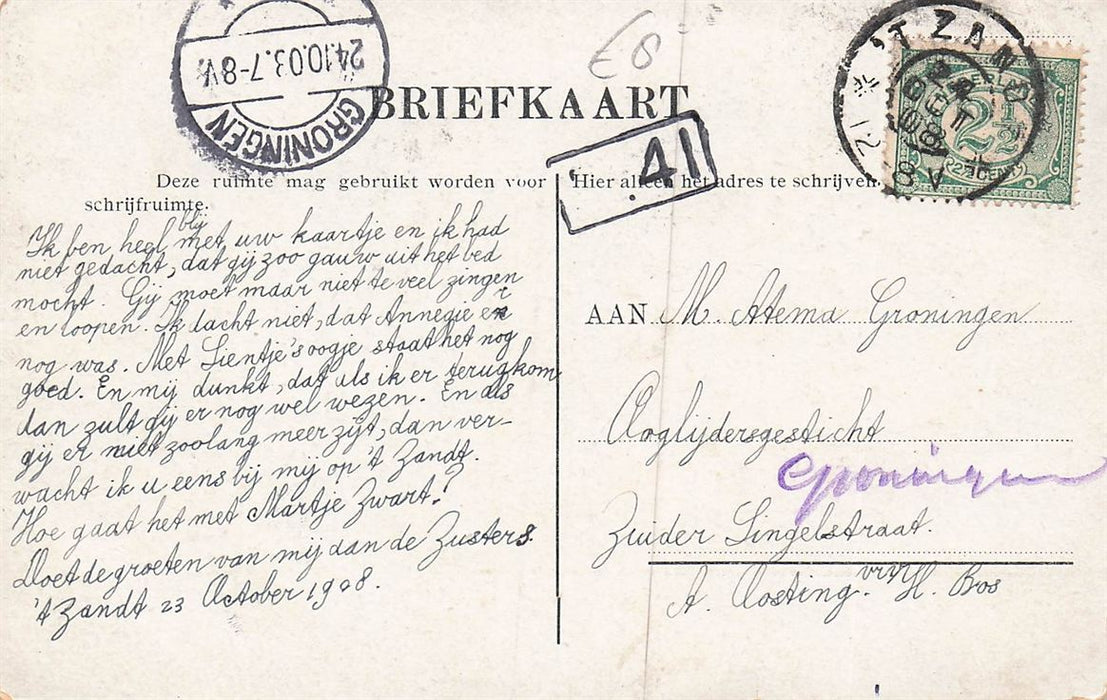 24.10.03.7-8V.
GRONINGEN
E8
'T ZAND
BRIEFKAART
41
2½
(2½ CENT)
Deze ruimte mag gebruikt worden voor
schrijfruimte.
Hier alleen het adres te schrijven.
Ik ben heel blij met uw kaartje en ik had
niet gedacht, dat gij zoo gauw uit het bed
mocht. Gij moet maar niet te veel zingen
en loopen. Ik dacht niet, dat Annegie er
nog was. Met Lientje's oogje staat het nog
goed. En mij dunkt, dat als ik er terug kom
dan zult gij er nog wel wezen. En als
gij er niet zoolang meer zijt, dan ver-
wacht ik u eens bij mij op 't Zandt.
Hoe gaat het met Martje Zwart?
Doet de groeten van mij aan de Zusters.
't Zandt 23 October 1908.
AAN M. Atema Groningen
Ooglijdersgesticht
Groningen
Zuider Singelstraat.
A. Oosting. H. Bos